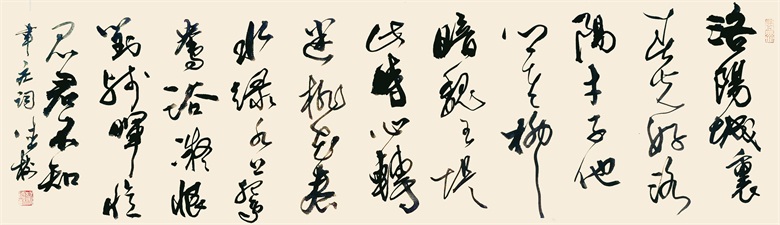 洛陽城裏
春光好洛
陽才子他
鄉老柳
暗魏王堤
此時心轉
迷桃花春
水緑水上鴛
鴦浴凝恨
對殘暉憶
君君不知
韋莊詞